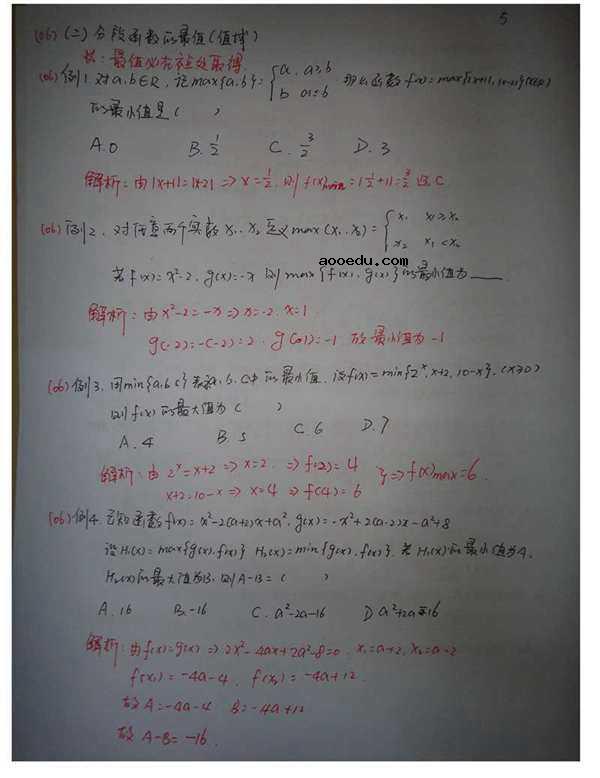 5
(06) (二) 分段函数的最值(值域)
最值必在拉处取得.
(06) 例1. 对a.b∈R, 记max{a,b}={a, a≥b
b a<b 函数 f(x)=max{|x+1|, |x-2|}(x∈R)
的最小值是( )
A.0 B. 1/2 C. 3/2 D. 3
解析: 由|x+1|=|x-2| ⇒ x=1/2. 则 f(x)min=|1/2+1|=3/2 选C
(06) 例2. 对任意两个实数 x₁. x₂ 定义max(x₁, x₂)={x₁ x₁≥x₂
x₂ x₁<x₂
aooedu.com
若 f(x)=x²-2. g(x)=-x 则 max{f(x). g(x)}的最小值为____
解析: 由 x²-2=-x ⇒ x=-2. x=1
g(-2)=-(-2)=2. g(1)=-1 故最小值为-1
(06) 例3. 用min{a,b,c}表示a.b.c中的最小值. 设f(x)=min{2ˣ, x+2, 10-x}. (x≥0)
则f(x)的最大值为( )
A. 4 B. 5 C. 6 D. 7
解析: 由 2ˣ=x+2 ⇒ x=2. ⇒ f(2)=4
x+2=10-x ⇒ x=4 ⇒ f(4)=6 } ⇒ f(x)max=6
(06) 例4. 已知函数f(x)=x²-2(a+2)x+a², g(x)=-x²+2(a-2)x-a²+8
设H₁(x)=max{g(x).f(x)} H₂(x)=min{g(x).f(x)}. 若H₁(x)的最小值为A,
H₂(x)的最大值为B. 则A-B=( )
A. 16 B. -16 C. a²-2a-16 D a²+2a-16
解析: 由f(x)=g(x) ⇒ 2x²-4ax+2a²-8=0. x₁=a+2, x₂=a-2
f(x₁)=-4a-4. f(x₂)=-4a+12
故 A=-4a-4 B=-4a+12
故 A-B=-16.